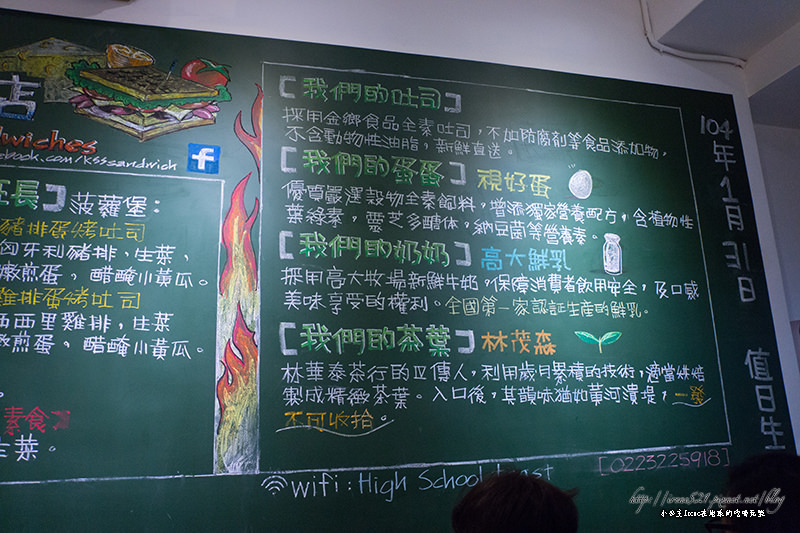 店
dwiches
ebook.com/ksssandwich
f
班長】菠蘿堡:
豬排蛋烤吐司
匈牙利豬排，生菜，
嫩煎蛋，醋醃小黃瓜。
雞排蛋烤吐司
西西里雞排，生菜
嫩煎蛋，醋醃小黃瓜。
素食】
生菜。
【我們的吐司】
採用金鄉食品全素吐司，不加防腐劑等食品添加物，
不含動物性油脂，新鮮直送。
【我們的蛋蛋】視好蛋
優質嚴選穀物全素飼料，增添獨家營養配方，含植物性
葉綠素，靈芝多醣体，納豆菌等營養素。
【我們的奶奶】高大鮮乳
採用高大牧場新鮮牛奶。保障消費者飲用安全，及口感
美味享受的權利。全國第一家認証生產的鮮乳。
【我們的茶葉】林茂森
林華泰茶行的五傳人，利用歲月累積的技術，適當烘焙
製成精緻茶葉。入口後，其韻味猶如黃河潰堤，一發
不可收拾。
wifi : High School toast
[0223225918]
104年1月31日
值日生
http://irene321.pixnet.net/blog
小公主Irene在地球的吃喝玩樂